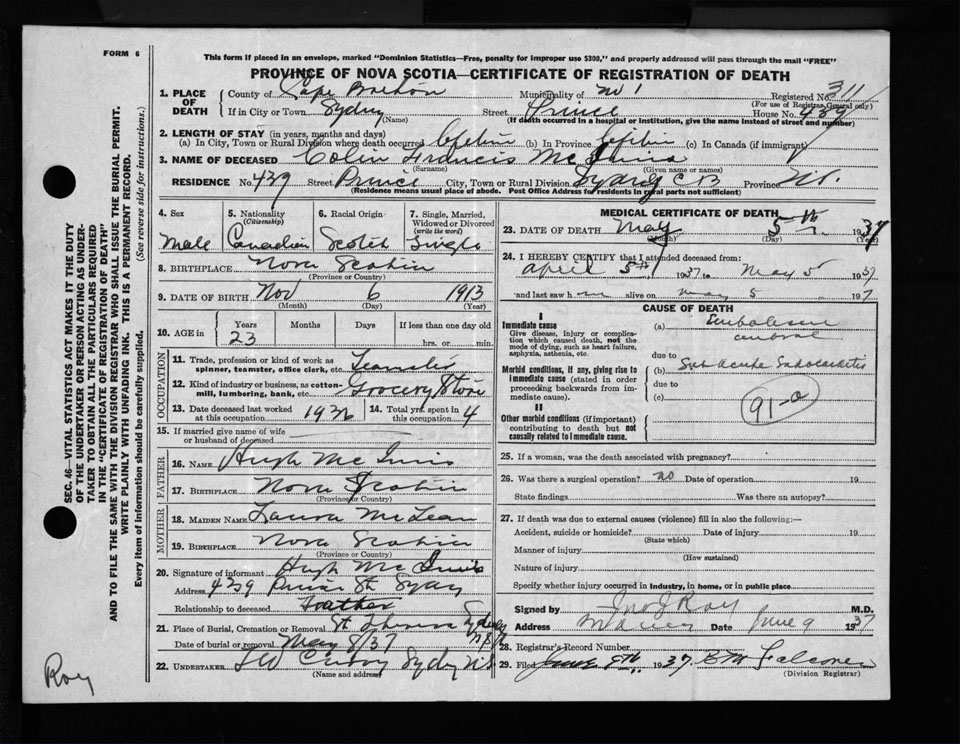 FORM 6
This form if placed in an envelope, marked "Dominion Statistics—Free, penalty for improper use $300," and properly addressed will pass through the mail "FREE"
PROVINCE OF NOVA SCOTIA—CERTIFICATE OF REGISTRATION OF DEATH
SEC. 46—VITAL STATISTICS ACT MAKES IT THE DUTY
OF THE UNDERTAKER OR PERSON ACTING AS UNDER-
TAKER TO OBTAIN ALL THE PARTICULARS REQUIRED
IN THE "CERTIFICATE OF REGISTRATION OF DEATH"
AND TO FILE THE SAME WITH THE DIVISION REGISTRAR WHO SHALL ISSUE THE BURIAL PERMIT.
WRITE PLAINLY WITH UNFADING INK. THIS IS A PERMANENT RECORD.
Every item of information should be carefully supplied. (See reverse side for instructions.)
1. PLACE OF DEATH County of Cape Breton Municipality of No 1 Registered No. 311
(For use of Registrar General only)
If in City or Town Sydney (Name) Street Prince House No. 439
(If death occurred in a hospital or institution, give the name instead of street and number)
2. LENGTH OF STAY (in years, months and days)
(a) In City, Town or Rural Division where death occurred Lifetime (b) In Province Lifetime (c) In Canada (if immigrant)
3. NAME OF DECEASED Colin Francis McInnis
(Surname) (Given name or names)
RESIDENCE No. 439 Street Prince City, Town or Rural Division Sydney C B Province N.S.
(Residence means usual place of abode. Post Office Address for residents in rural parts not sufficient)
4. Sex Male
5. Nationality (Citizenship) Canadian
6. Racial Origin Scotch
7. Single, Married, Widowed or Divorced (write the word) Single
8. BIRTHPLACE Nova Scotia
(Province or Country)
9. DATE OF BIRTH Nov 6 1913
(Month) (Day) (Year)
10. AGE in Years 23 Months Days If less than one day old hrs. or min.
OCCUPATION
11. Trade, profession or kind of work as spinner, teamster, office clerk, etc. Teamster
12. Kind of industry or business, as cotton-mill, lumbering, bank, etc. Grocery Store
13. Date deceased last worked at this occupation 1936 14. Total yrs. spent in this occupation 4
15. If married give name of wife or husband of deceased
FATHER
16. NAME Hugh McInnis
17. BIRTHPLACE Nova Scotia
(Province or Country)
MOTHER
18. MAIDEN NAME Laura McLean
19. BIRTHPLACE Nova Scotia
(Province or Country)
20. Signature of informant Hugh McInnis
Address 439 Prince St Sydney
Relationship to deceased Father
21. Place of Burial, Cremation or Removal St Theresa Sydney
Date of burial or removal May 8/37
22. UNDERTAKER Sydney NS
(Name and address)
MEDICAL CERTIFICATE OF DEATH
23. DATE OF DEATH May 5th 1937
(Month) (Day) (Year)
24. I HEREBY CERTIFY that I attended deceased from:
April 5th 1937 to May 5 1937
and last saw him alive on May 5 1937
CAUSE OF DEATH
I
Immediate cause
Give disease, injury or complication which caused death, not the mode of dying, such as heart failure, asphyxia, asthenia, etc.
(a) Embolism cerebral
due to
Morbid conditions, if any, giving rise to immediate cause (stated in order proceeding backwards from immediate cause).
(b) Sub Acute Endocarditis
due to
(c)
91-a
II
Other morbid conditions (if important) contributing to death but not causally related to immediate cause.
25. If a woman, was the death associated with pregnancy?
26. Was there a surgical operation? no Date of operation 19
State findings Was there an autopsy?
27. If death was due to external causes (violence) fill in also the following:—
Accident, suicide or homicide? Date of injury 19
(State which)
Manner of injury
(How sustained)
Nature of injury
Specify whether injury occurred in industry, in home, or in public place
Signed by Jno J Roy M.D.
Address Sydney Date June 9 1937
28. Registrar's Record Number
29. Filed June 8th 1937 Falconer
(Division Registrar)
Roy